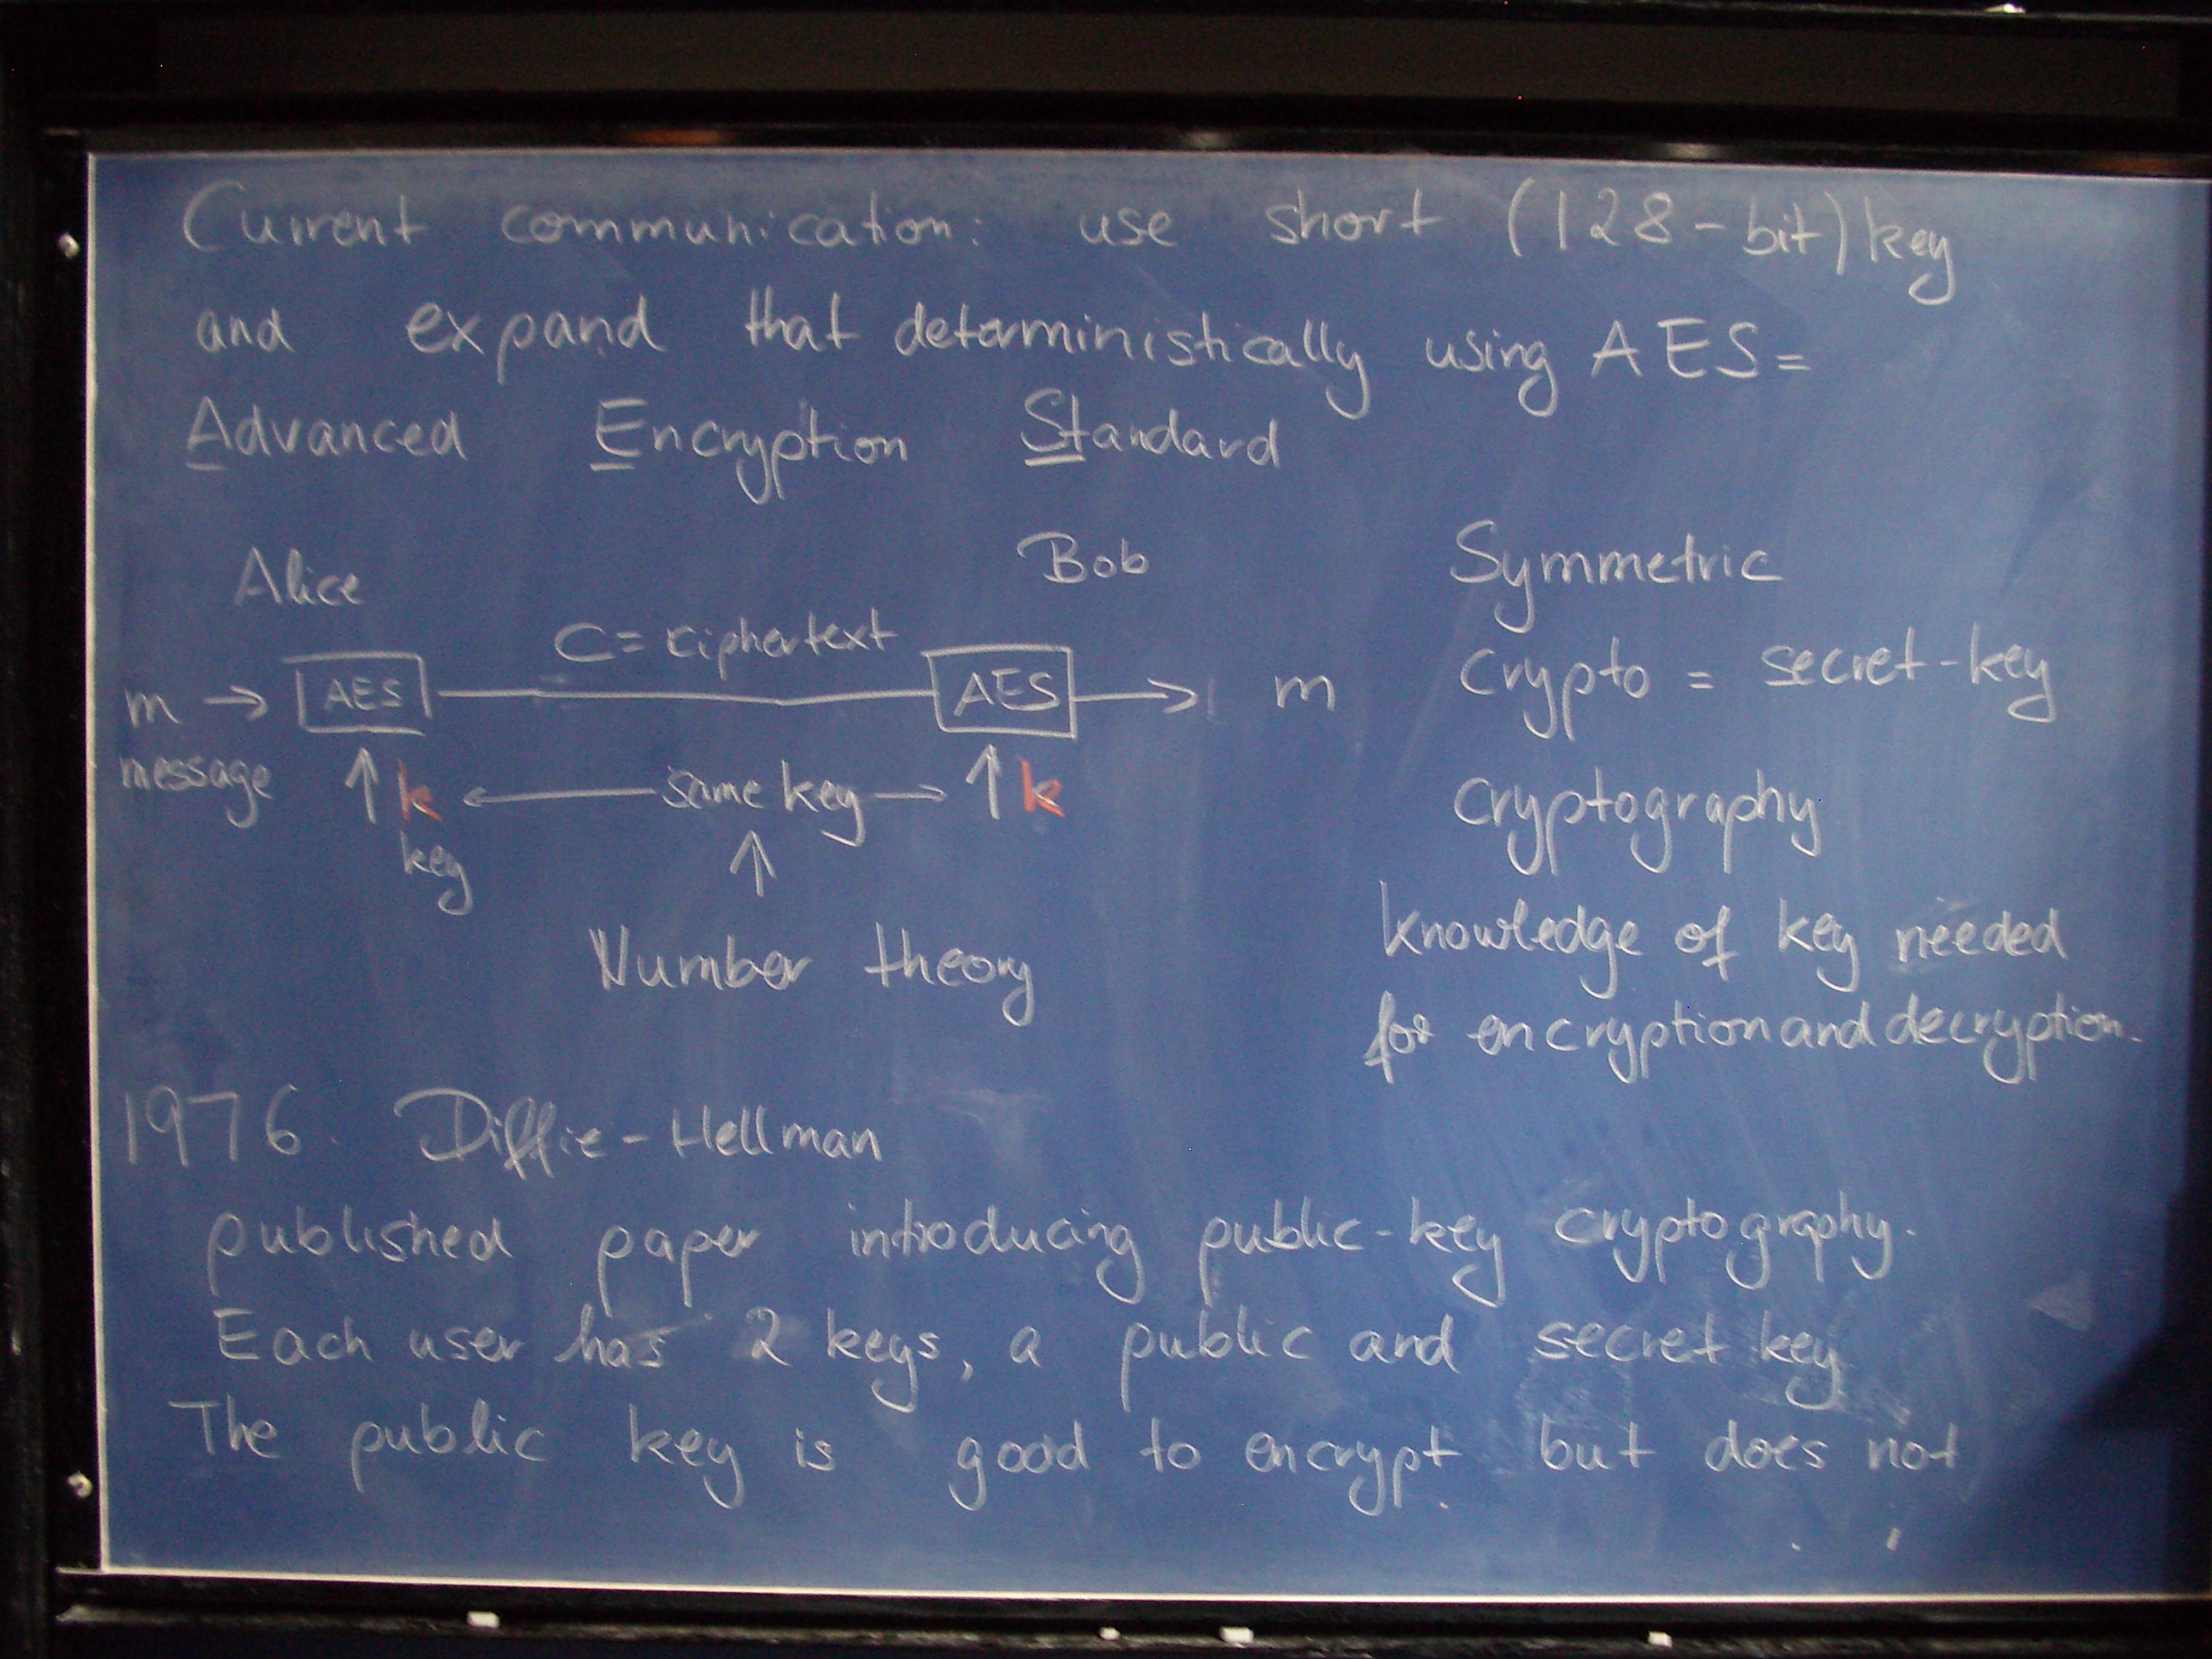 Current communication: use short (128-bit) key
and expand that deterministically using AES=
Advanced Encryption Standard
Alice
Bob
C = ciphertext
m → AES AES → m
message ↑ k ← same key → ↑ k
key ↑
Number theory
Symmetric
crypto = secret-key
cryptography
knowledge of key needed
for encryption and decryption.
1976. Diffie-Hellman
published paper introducing public-key cryptography.
Each user has 2 keys, a public and secret key
The public key is good to encrypt but does not